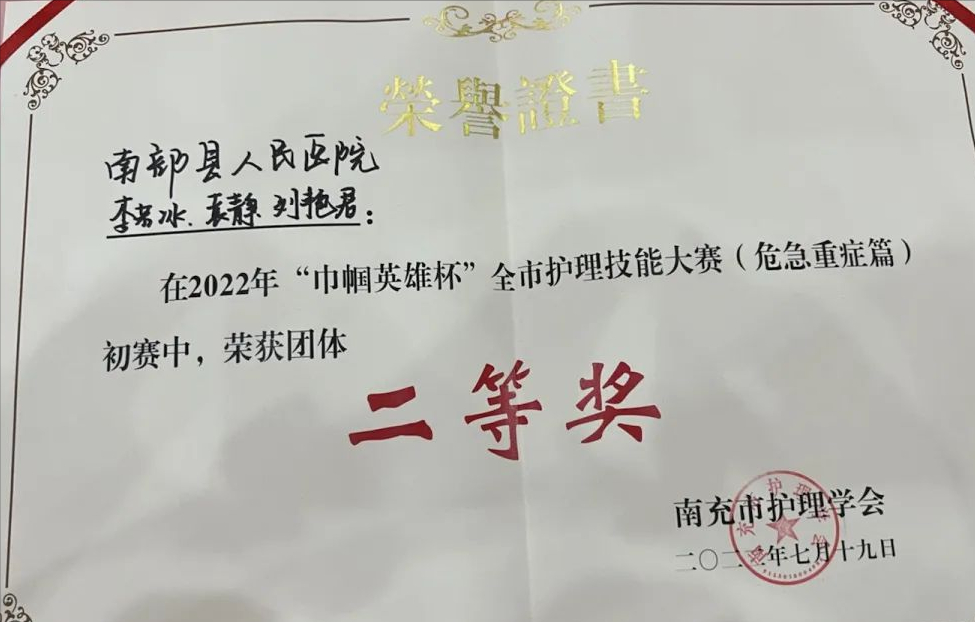 榮譽證書
南部县人民医院
李岩冰、袁静、刘艳君：
在2022年“巾帼英雄杯”全市护理技能大赛（危急重症篇）
初赛中，荣获团体
二等奖
南充市护理学会
二〇二二年七月十九日